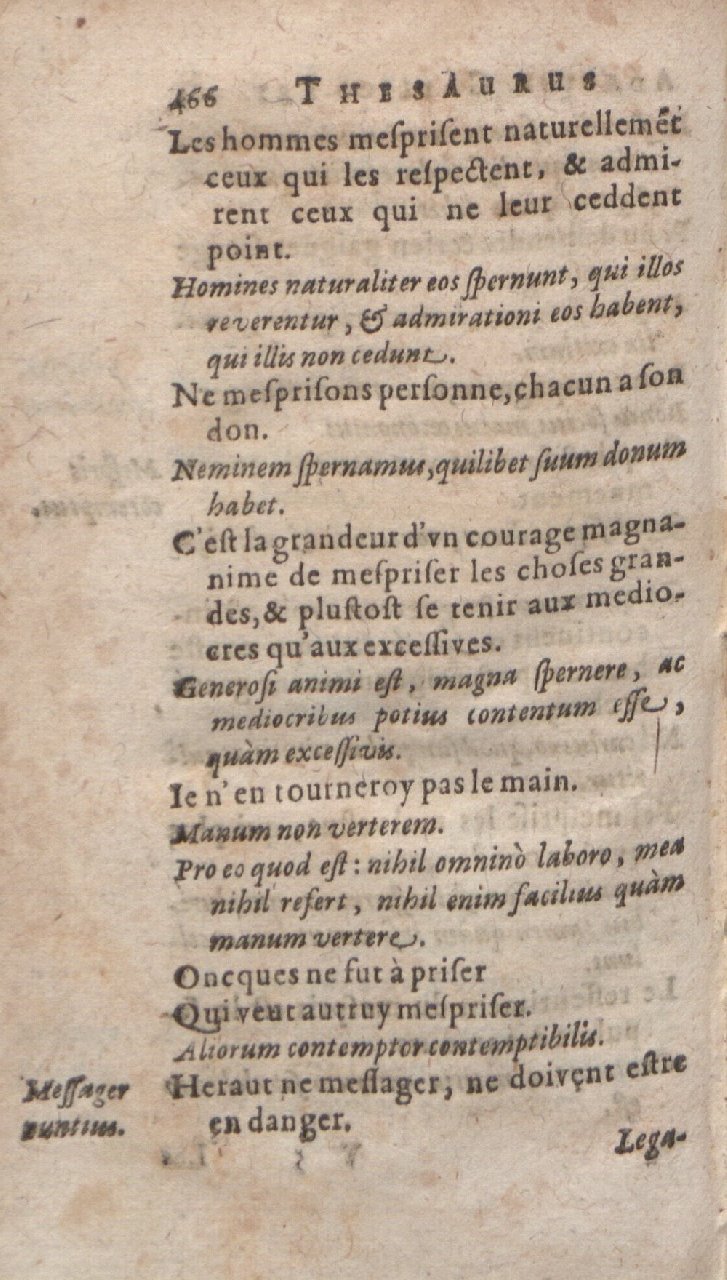 466 THESAURUS
Les hommes meſpriſent naturellemẽt
ceux qui les reſpectent, & admi-
rent ceux qui ne leur ceddent
point.
Homines naturaliter eos ſpernunt, qui illos
reverentur, & admirationi eos habent,
qui illis non cedunt.
Ne meſpriſons perſonne, chacun a ſon
don.
Neminem ſpernamus, quilibet ſuum donum
habet.
C'eſt la grandeur d'vn courage magna-
nime de meſpriſer les choſes gran-
des, & pluſtoſt ſe tenir aux medio-
cres qu'aux exceſſives.
Generoſi animi eſt, magna ſpernere, ac
mediocribus potius contentum eſſe,
quàm exceſſivis.
Ie n'en tourneroy pas le main.
Manum non verterem.
Pro eo quod eſt: nihil omninò laboro, mea
nihil refert, nihil enim facilius quàm
manum vertere.
Oncques ne fut à priſer
Qui veut autruy meſpriſer.
Aliorum contemptor contemptibilis.
Meſſager
nuntius.
Heraut ne meſſager, ne doivent eſtre
en danger.
Lega-